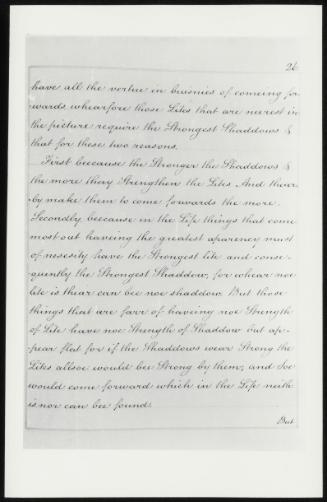 26
have all the vertue in busenies of comeing for
wards, whearfore those Lites that are neerest in
the picture require the Strongest Shaddows &
that for these two reasons.
First because the Stronger the Shaddows &
the more they Strengthen the Lites And thear
by make them to come forwards the more.
Secondly because in the Life things that come
most out haveing the greatest aparency must
of nesessity have the Strongest lite and conse-
quently the Strongest Shaddow, for whear noe
lite is thear can bee noe shaddow But those
things that are farr of haveing noe Strength
of Lite have noe Strength of Shaddow but ap-
pear flat for if the Shaddows wear Strong the
Lites allsoe would bee Strong by them, and Soe
would come forward which in the Life neith
is nor can bee found.
But